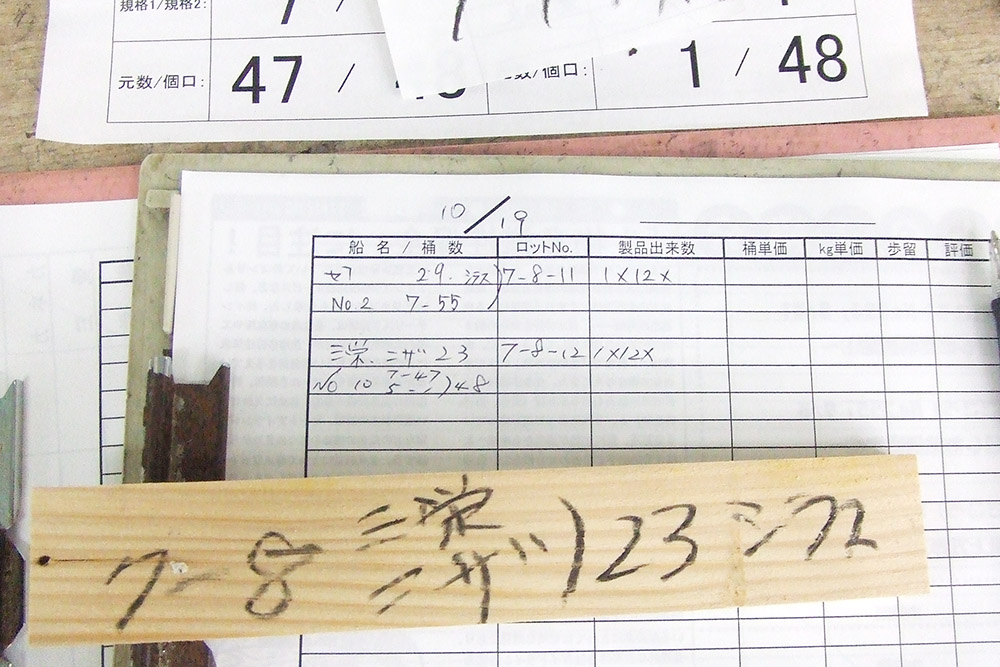 規格1/規格2: 7 /
元数/個口: 47 / 1 / 48
10/19
船 名 / 桶 数 ロットNo. 製品出来数 桶単価 kg単価 歩留 評価
29. シラス 7-8-11 1×12×
No.2 7-55
三栄. ニザ 23 7-8-12 1×12×
No 10 7-47 48
三栄
7-8 ニザ ) 23 シラス